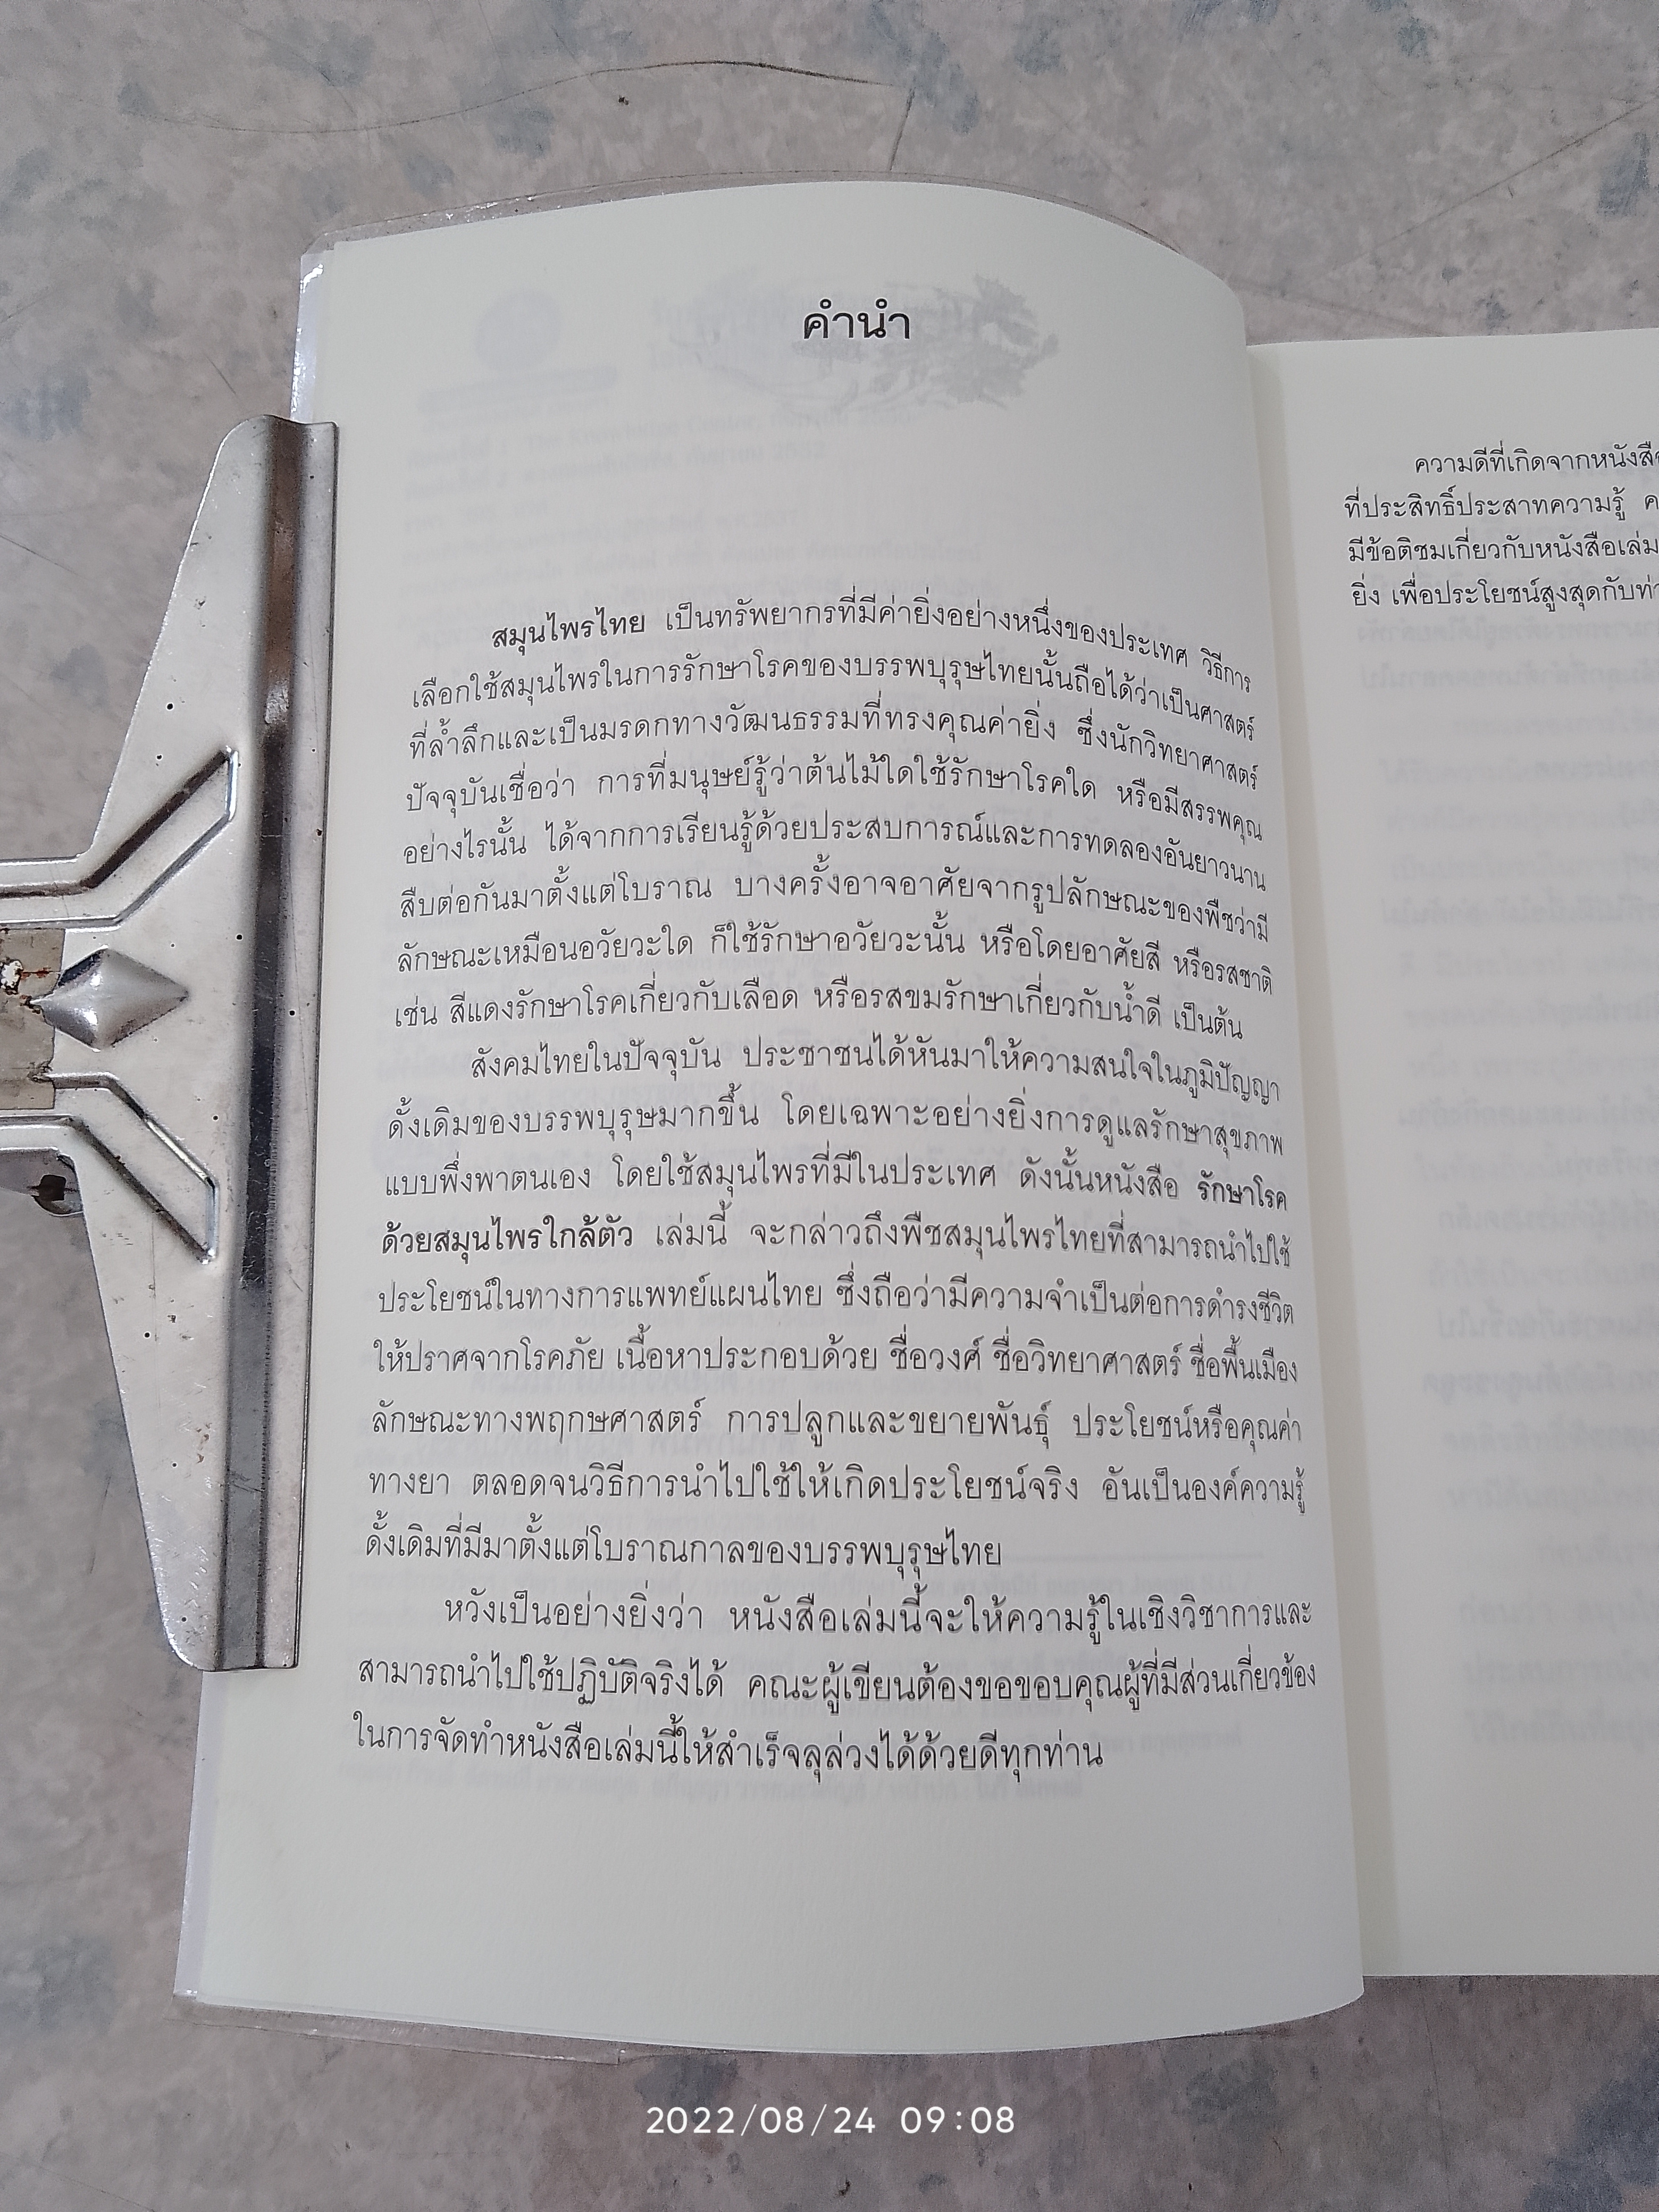 คำนำ
สมุนไพรไทย เป็นทรัพยากรที่มีค่ายิ่งอย่างหนึ่งของประเทศ วิธีการ
เลือกใช้สมุนไพรในการรักษาโรคของบรรพบุรุษไทยนั้นถือได้ว่าเป็นศาสตร์
ที่ล้ำลึกและเป็นมรดกทางวัฒนธรรมที่ทรงคุณค่ายิ่ง ซึ่งนักวิทยาศาสตร์
ปัจจุบันเชื่อว่า การที่มนุษย์รู้ว่าต้นไม้ใดใช้รักษาโรคใด หรือมีสรรพคุณ
อย่างไรนั้น ได้จากการเรียนรู้ด้วยประสบการณ์และการทดลองอันยาวนาน
สืบต่อกันมาตั้งแต่โบราณ บางครั้งอาจอาศัยจากรูปลักษณะของพืชว่ามี
ลักษณะเหมือนอวัยวะใด ก็ใช้รักษาอวัยวะนั้น หรือโดยอาศัยสี หรือรสชาติ
เช่น สีแดงรักษาโรคเกี่ยวกับเลือด หรือรสขมรักษาเกี่ยวกับน้ำดี เป็นต้น
สังคมไทยในปัจจุบัน ประชาชนได้หันมาให้ความสนใจในภูมิปัญญา
ดั้งเดิมของบรรพบุรุษมากขึ้น โดยเฉพาะอย่างยิ่งการดูแลรักษาสุขภาพ
แบบพึ่งพาตนเอง โดยใช้สมุนไพรที่มีในประเทศ ดังนั้นหนังสือ รักษาโรค
ด้วยสมุนไพรใกล้ตัว เล่มนี้ จะกล่าวถึงพืชสมุนไพรไทยที่สามารถนำไปใช้
ประโยชน์ในทางการแพทย์แผนไทย ซึ่งถือว่ามีความจำเป็นต่อการดำรงชีวิต
ให้ปราศจากโรคภัย เนื้อหาประกอบด้วย ชื่อวงศ์ ชื่อวิทยาศาสตร์ ชื่อพื้นเมือง
ลักษณะทางพฤกษศาสตร์ การปลูกและขยายพันธุ์ ประโยชน์หรือคุณค่า
ทางยา ตลอดจนวิธีการนำไปใช้ให้เกิดประโยชน์จริง อันเป็นองค์ความรู้
ดั้งเดิมที่มีมาตั้งแต่โบราณกาลของบรรพบุรุษไทย
หวังเป็นอย่างยิ่งว่า หนังสือเล่มนี้จะให้ความรู้ในเชิงวิชาการและ
สามารถนำไปใช้ปฏิบัติจริงได้ คณะผู้เขียนต้องขอขอบคุณผู้ที่มีส่วนเกี่ยวข้อง
ในการจัดทำหนังสือเล่มนี้ให้สำเร็จลุล่วงได้ด้วยดีทุกท่าน
ความดีที่เกิดจากหนังสือ
ที่ประสิทธิ์ประสาทความรู้
มีข้อติชมเกี่ยวกับหนังสือเล่ม
ยิ่ง เพื่อประโยชน์สูงสุดกับท่า
2022/08/24 09:08